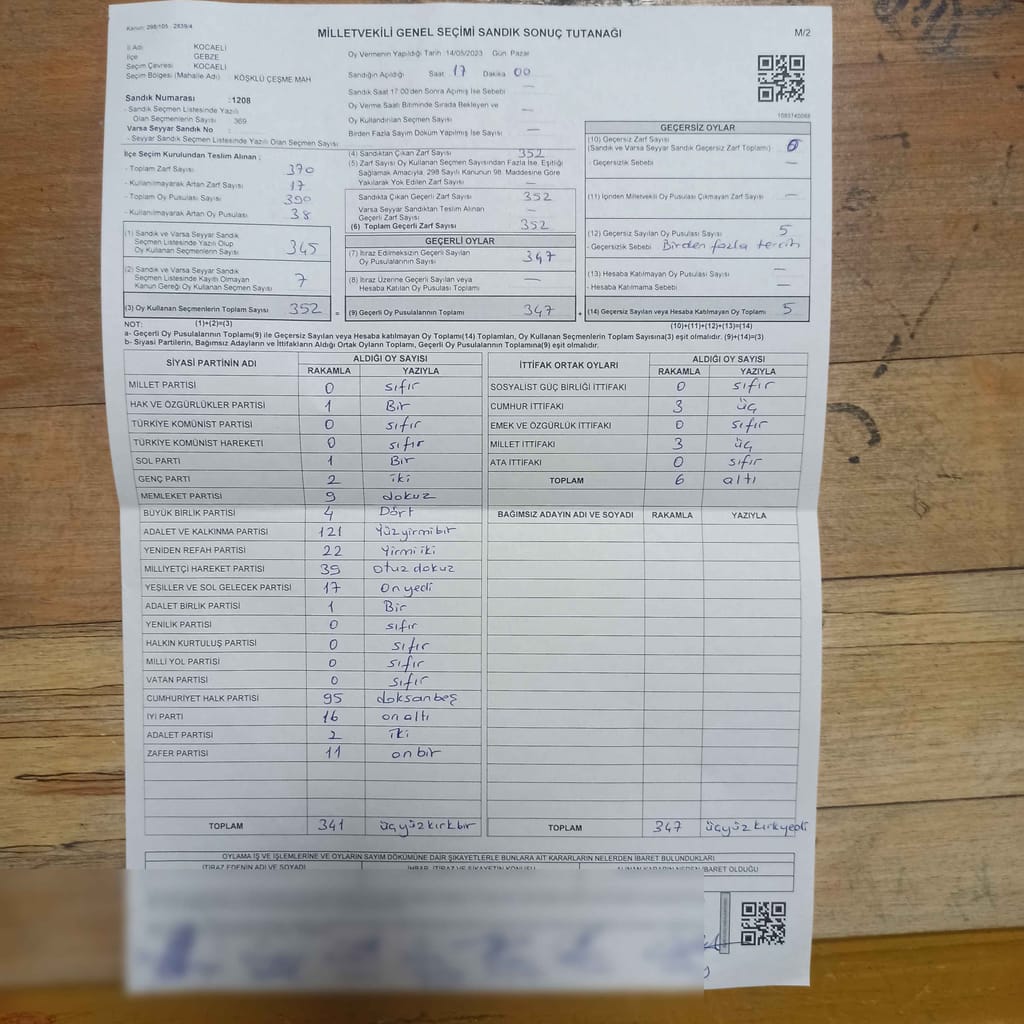 Kanun: 298/105 2839/4
MİLLETVEKİLİ GENEL SEÇİMİ SANDIK SONUÇ TUTANAĞI
M/2
İl Adı KOCAELİ
İlçe GEBZE
Seçim Çevresi KOCAELİ
Seçim Bölgesi (Mahalle Adı) KÖŞKLÜ ÇEŞME MAH
Sandık Numarası :1208
- Sandık Seçmen Listesinde Yazılı
Olan Seçmenlerin Sayısı 369
Varsa Seyyar Sandık No :
- Seyyar Sandık Seçmen Listesinde Yazılı Olan Seçmen Sayısı
Oy Vermenin Yapıldığı Tarih 14/05/2023 Gün Pazar
Sandığın Açıldığı Saat 17 Dakika 00
Sandık Saat 17:00'den Sonra Açılmış İse Sebebi —
Oy Verme Saati Bitiminde Sırada Bekleyen ve
Oy Kullandırılan Seçmen Sayısı —
Birden Fazla Sayım Döküm Yapılmış İse Sayısı —
İlçe Seçim Kurulundan Teslim Alınan :
- Toplam Zarf Sayısı 370
- Kullanılmayarak Artan Zarf Sayısı 17
- Toplam Oy Pusulası Sayısı 390
- Kullanılmayarak Artan Oy Pusulası 38
(1) Sandık ve Varsa Seyyar Sandık
Seçmen Listesinde Yazılı Olup
Oy Kullanan Seçmenlerin Sayısı 345
(2) Sandık ve Varsa Seyyar Sandık
Seçmen Listesinde Kayıtlı Olmayan
Kanun Gereği Oy Kullanan Seçmen Sayısı 7
(3) Oy Kullanan Seçmenlerin Toplam Sayısı 352
(1)+(2)=(3)
(4) Sandıktan Çıkan Zarf Sayısı 352
(5) Zarf Sayısı Oy Kullanan Seçmen Sayısından Fazla İse, Eşitliği
Sağlamak Amacıyla, 298 Sayılı Kanunun 98. Maddesine Göre
Yakılarak Yok Edilen Zarf Sayısı —
Sandıkta Çıkan Geçerli Zarf Sayısı 352
Varsa Seyyar Sandıktan Teslim Alınan
Geçerli Zarf Sayısı —
(6) Toplam Geçerli Zarf Sayısı 352
GEÇERLİ OYLAR
(7) İtiraz Edilmeksizin Geçerli Sayılan
Oy Pusulalarının Sayısı 347
(8) İtiraz Üzerine Geçerli Sayılan veya
Hesaba Katılan Oy Pusulası Toplamı —
= (9) Geçerli Oy Pusulalarının Toplamı 347 +
GEÇERSİZ OYLAR
(10) Geçersiz Zarf Sayısı
(Sandık ve Varsa Seyyar Sandık Geçersiz Zarf Toplamı)
- Geçersizlik Sebebi —
(11) İçinden Milletvekili Oy Pusulası Çıkmayan Zarf Sayısı —
(12) Geçersiz Sayılan Oy Pusulası Sayısı 5
- Geçersizlik Sebebi Birden fazla tercih
(13) Hesaba Katılmayan Oy Pusulası Sayısı —
- Hesaba Katılmama Sebebi —
(14) Geçersiz Sayılan veya Hesaba Katılmayan Oy Toplamı 5
(10)+(11)+(12)+(13)=(14)
NOT:
a- Geçerli Oy Pusulalarının Toplamı(9) ile Geçersiz Sayılan veya Hesaba katılmayan Oy Toplamı(14) Toplamları, Oy Kullanan Seçmenlerin Toplam Sayısına(3) eşit olmalıdır. (9)+(14)=(3)
b- Siyasi Partilerin, Bağımsız Adayların ve İttifakların Aldığı Ortak Oyların Toplamı, Geçerli Oy Pusulalarının Toplamına(9) eşit olmalıdır.
SİYASİ PARTİNİN ADI ALDIĞI OY SAYISI
RAKAMLA YAZIYLA
MİLLET PARTİSİ 0 sıfır
HAK VE ÖZGÜRLÜKLER PARTİSİ 1 Bir
TÜRKİYE KOMÜNİST PARTİSİ 0 sıfır
TÜRKİYE KOMÜNİST HAREKETİ 0 sıfır
SOL PARTİ 1 Bir
GENÇ PARTİ 2 iki
MEMLEKET PARTİSİ 9 dokuz
BÜYÜK BİRLİK PARTİSİ 4 Dört
ADALET VE KALKINMA PARTİSİ 121 Yüzyirmibir
YENİDEN REFAH PARTİSİ 22 Yirmi iki
MİLLİYETÇİ HAREKET PARTİSİ 39 otuz dokuz
YEŞİLLER VE SOL GELECEK PARTİSİ 17 Onyedi
ADALET BİRLİK PARTİSİ 1 Bir
YENİLİK PARTİSİ 0 sıfır
HALKIN KURTULUŞ PARTİSİ 0 sıfır
MİLLİ YOL PARTİSİ 0 sıfır
VATAN PARTİSİ 0 sıfır
CUMHURİYET HALK PARTİSİ 95 doksanbeş
İYİ PARTİ 16 on altı
ADALET PARTİSİ 2 iki
ZAFER PARTİSİ 11 on bir
TOPLAM 341 üçyüzkırkbir
İTTİFAK ORTAK OYLARI ALDIĞI OY SAYISI
RAKAMLA YAZIYLA
SOSYALİST GÜÇ BİRLİĞİ İTTİFAKI 0 sıfır
CUMHUR İTTİFAKI 3 üç
EMEK VE ÖZGÜRLÜK İTTİFAKI 0 sıfır
MİLLET İTTİFAKI 3 üç
ATA İTTİFAKI 0 sıfır
TOPLAM 6 altı
BAĞIMSIZ ADAYIN ADI VE SOYADI RAKAMLA YAZIYLA
TOPLAM 347 üçyüzkırkyedi
OYLAMA İŞ VE İŞLEMLERİNE VE OYLARIN SAYIM DÖKÜMÜNE DAİR ŞİKAYETLERLE BUNLARA AİT KARARLARIN NELERDEN İBARET BULUNDUKLARI
İTİRAZ EDENİN ADI VE SOYADI İHBAR, İTİRAZ VE ŞİKAYETİN KONUSU ALINAN KARARIN NEDEN İBARET OLDUĞU